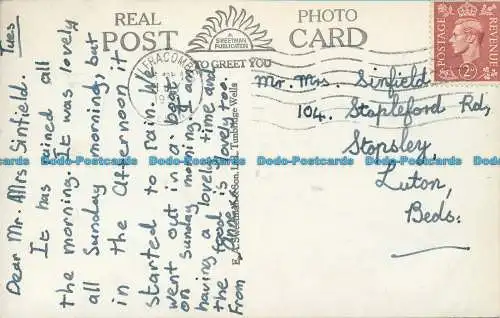 REAL PHOTO
POST CARD
A
SWEETMAN
PUBLICATION
TO GREET YOU
ILFRACOMBE
POSTAGE
REVENUE
Tues
Dear Mr. Mrs Sinfield.
It has rained all
the morning. It was lovely
all Sunday morning, but
in the afternoon it
started to rain. We
went out in a boat
on Sunday morning. I am
having a lovely time and
the food is lovely too.
From Anne
E. A. Sweetman & Son Ltd., Tunbridge Wells
Mr. Mrs. Sinfield
104. Stapleford Rd,
Stopsley,
Luton,
Beds.
Dodo-Postcards Dodo-Postcards Dodo-Postcards Dodo-Postcards Dodo-Postcards